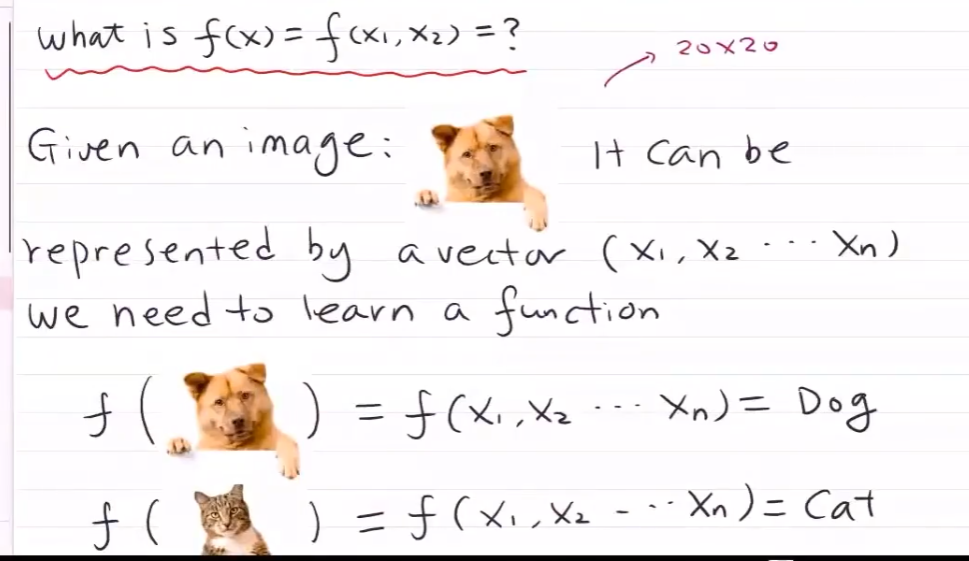 what is f(x) = f(x₁, x₂) = ?
20x20
Given an image: It can be
represented by a vector (x₁, x₂ ··· xn)
we need to learn a function
f ( ) = f(x₁, x₂ ··· xn) = Dog
f ( ) = f(x₁, x₂ - ·· xn) = Cat